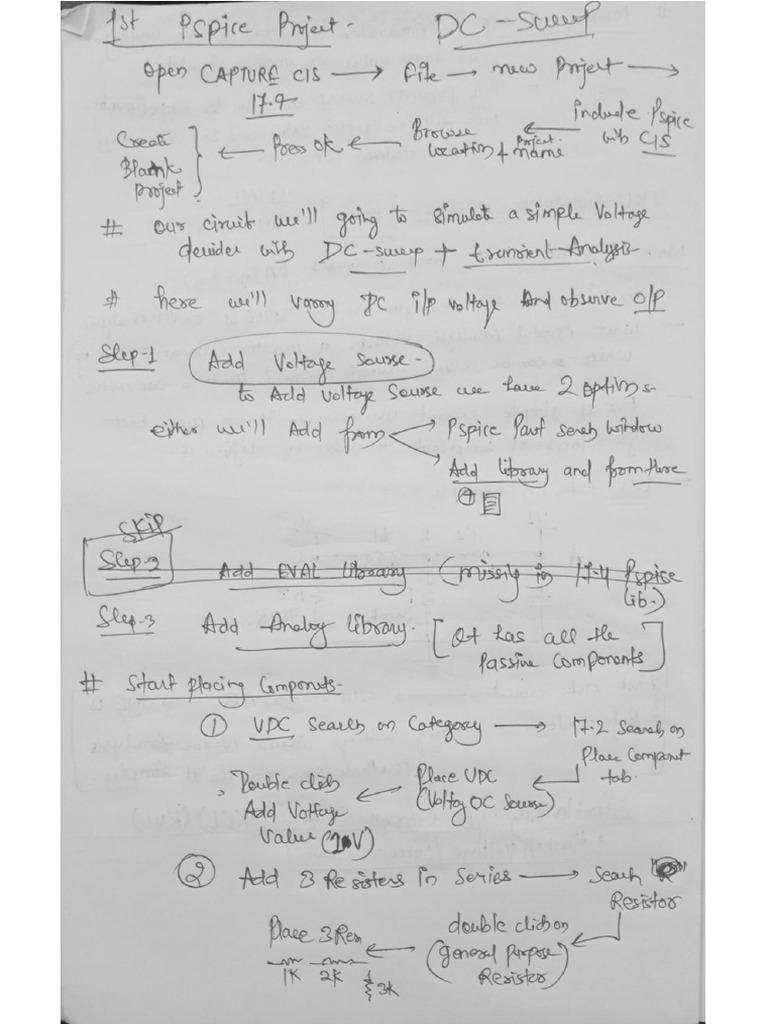 1st Pspice Project. DC-sweep
Open CAPTURE CIS → file → new Project →
17.4
Include Pspice with CIS
← Browse location + Project name
← Press OK ←
Create Blank project
# our circuit we'll going to simulate a simple Voltage
devider with DC-sweep + transient-Analysis
# here we'll varry DC i/p voltage And observe O/P
Step-1 Add Voltage Sourse-
to Add voltage Sourse we have 2 options-
either we'll Add from → Pspice Part serch window
→ Add library and from there
Skip
Step-2 Add EVAL library (missing in 17.4 Pspice
lib.)
Step-3 Add Analog library. [It has all the
Passive Components]
# Start placing Componets-
① VDC Search on Category → 17.2 Search on
Place Componet
tab.
Place VDC
(Voltag DC Sourse)
← Double click
Add Voltage
Value (10V)
② Add 3 Resisters in Series → Seach
Resistor
double click on
(general purpose
Resistor)
← Place 3 Res
1K 2K 3K